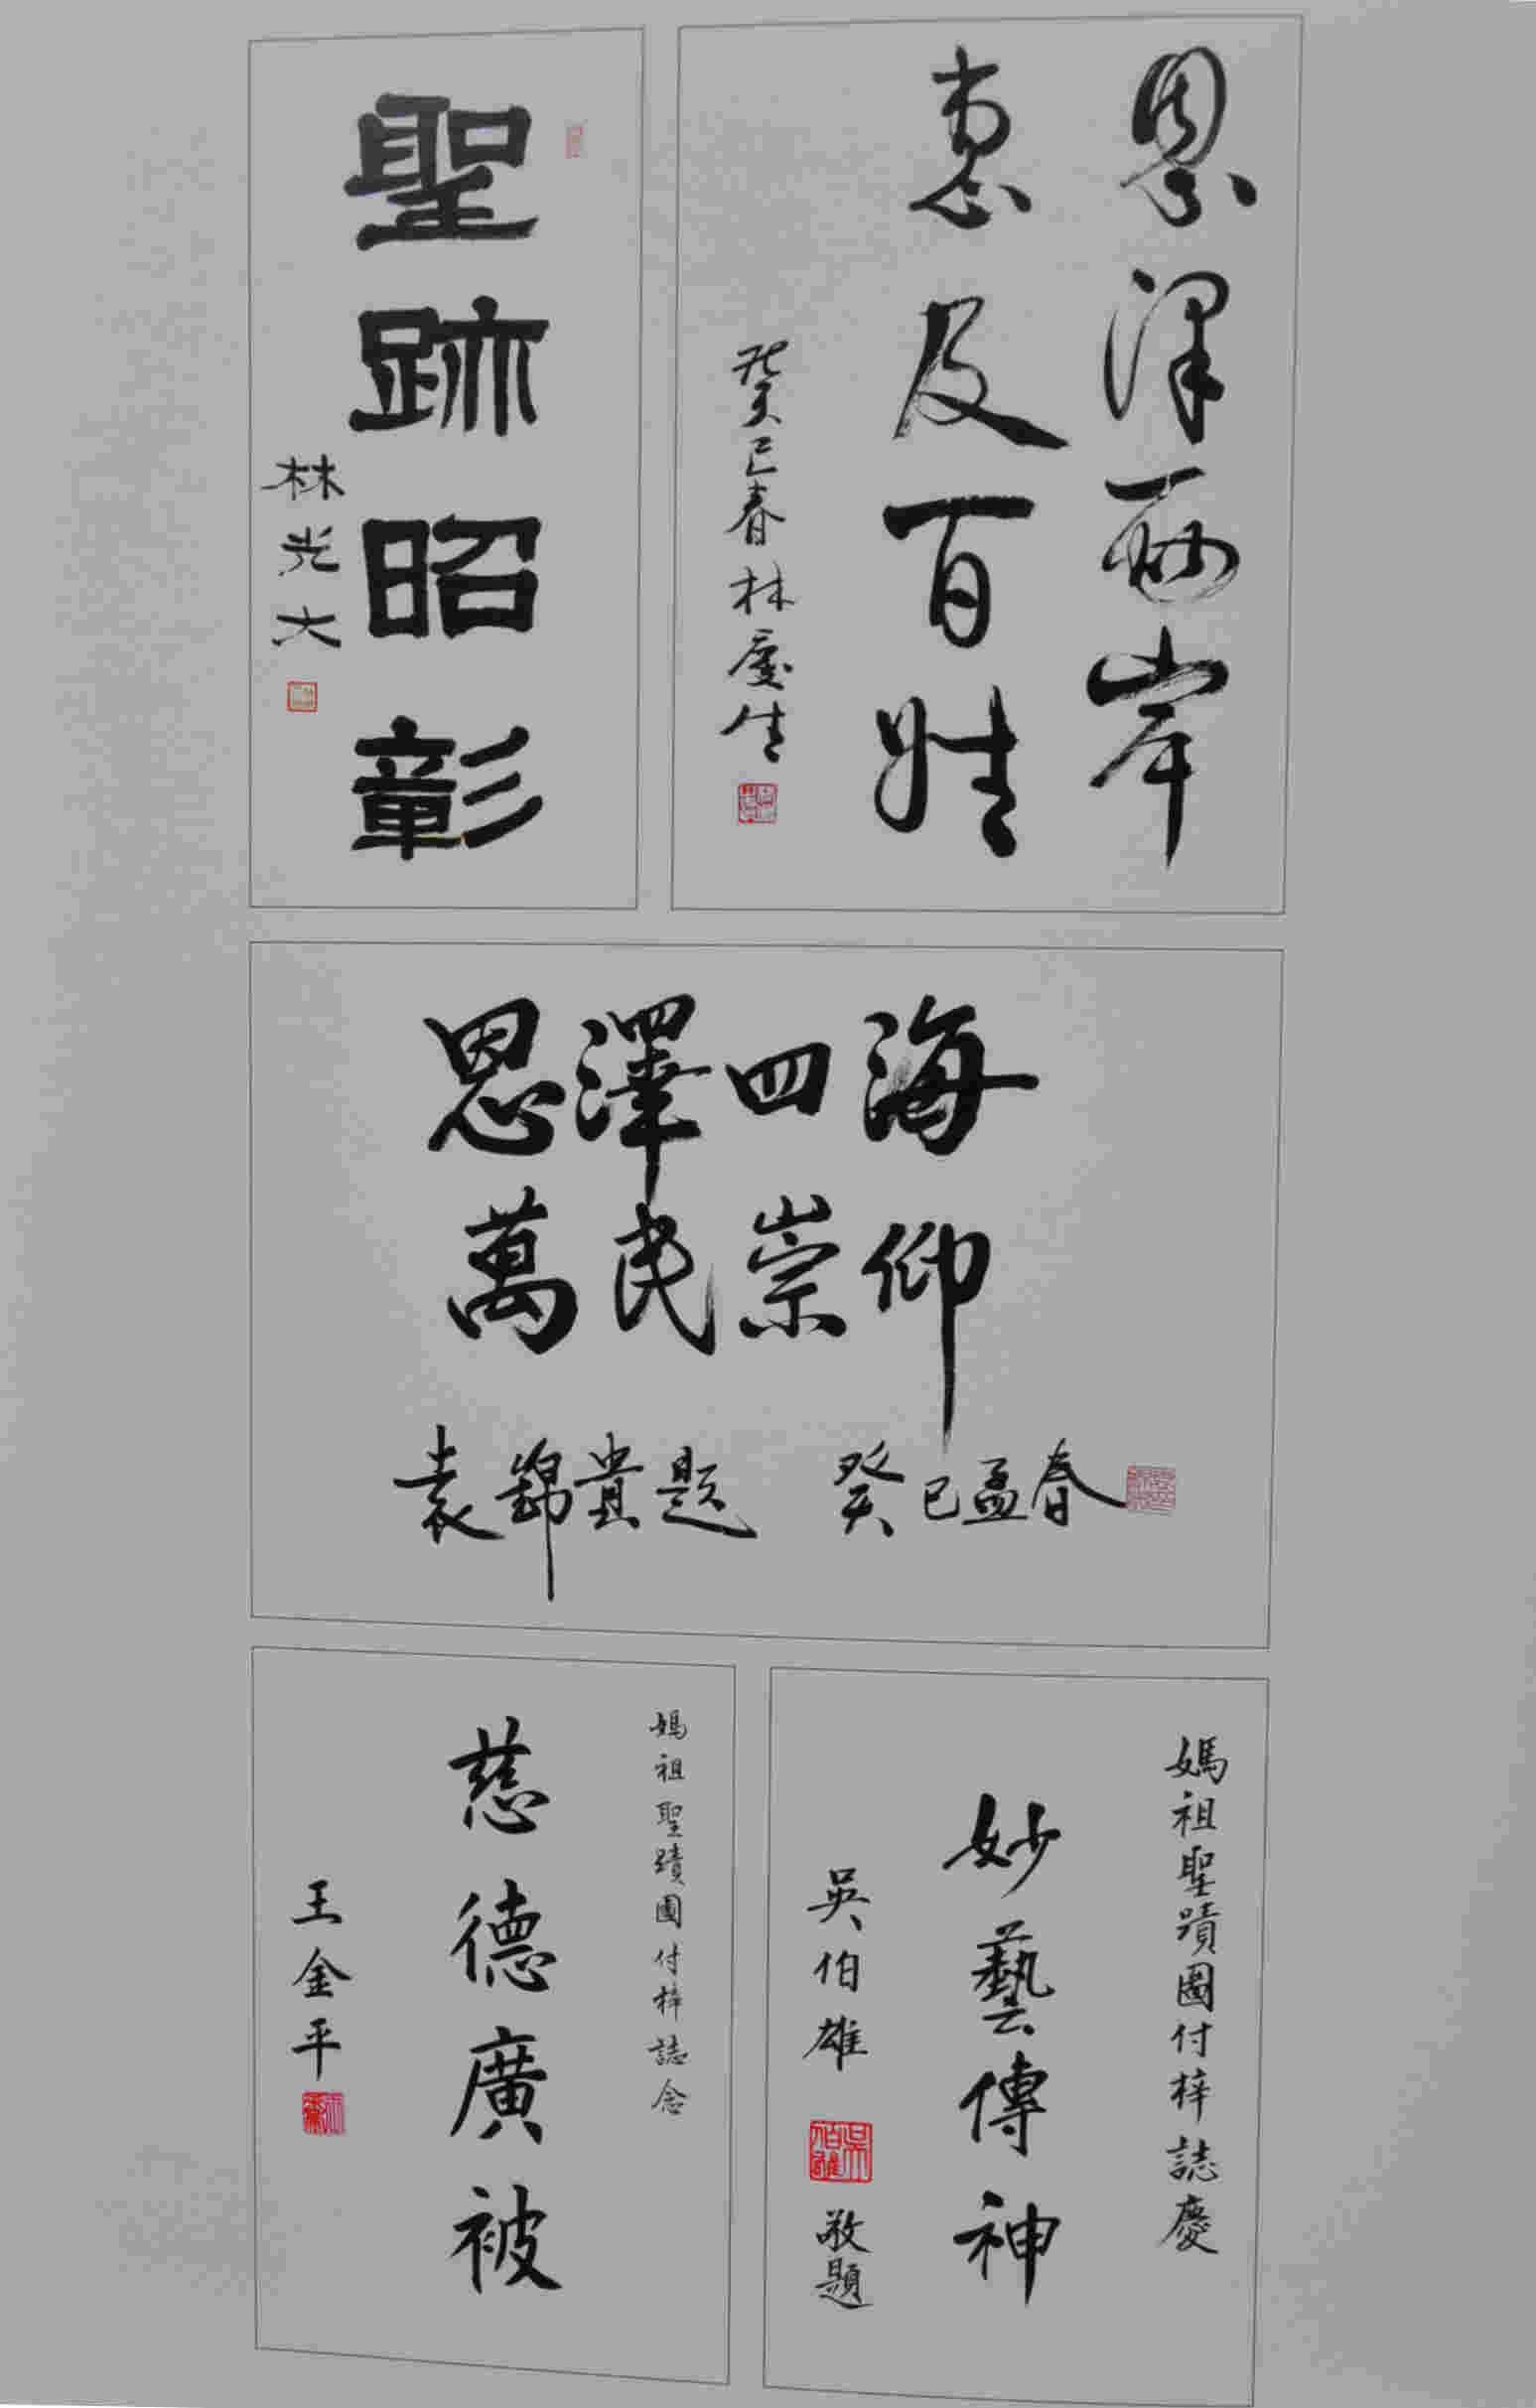 恩澤两岸
惠及百姓
癸巳春林慶生
聖跡昭彰
林光大
恩澤四海
萬民崇仰
袁錦貴題 癸巳孟春
媽祖聖蹟圖付梓誌慶
妙藝傳神
吳伯雄
吳伯雄
敬題
媽祖聖蹟圖付梓誌念
慈德廣被
王金平